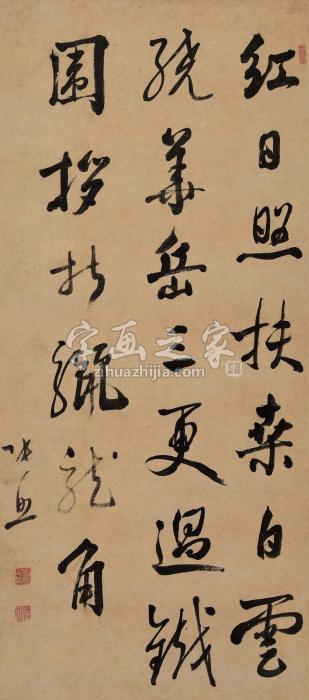 红日照扶桑白雲
绕华岳三更過鐵
圍拶折驪龍角
张照
字画之家
zihuazhijia.com